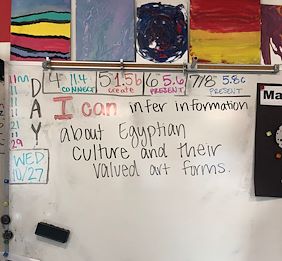 4 1.4 CONNECT 5 1.5b create 6 5.6 PRESENT 7/8 5.8c PRESENT
DAY
11
11
21
11
29
WED
10/27
I can infer information
about Egyptian
culture and their
valued art forms.
Ma